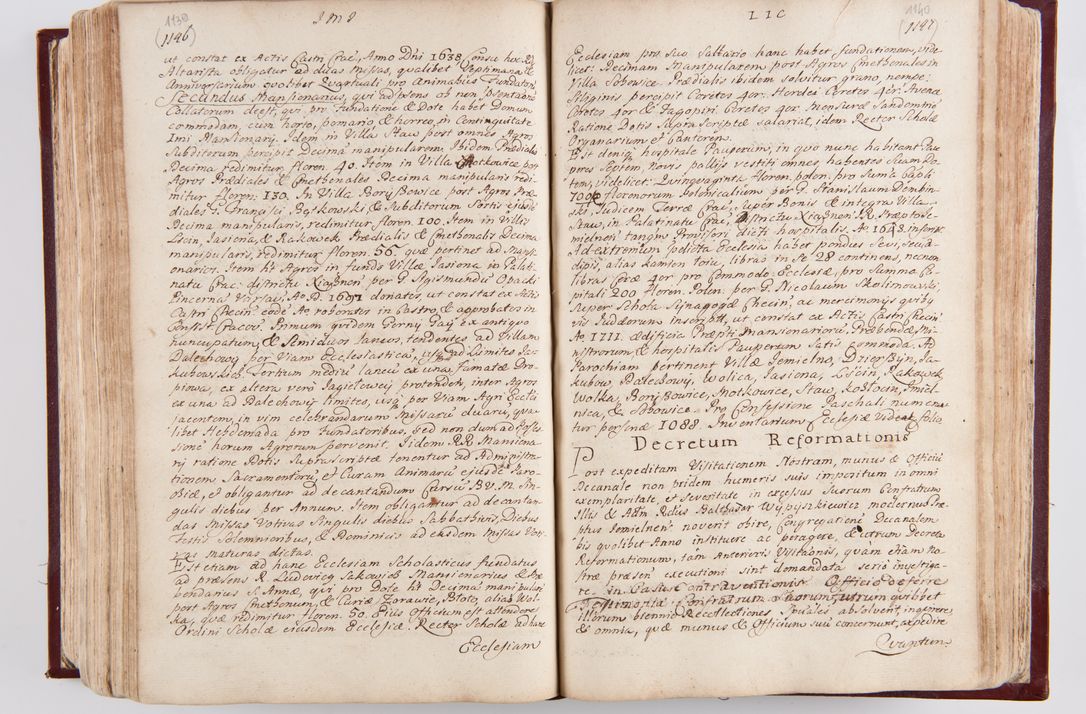 1139
(1146)
I M I
ut constat ex Actis Castri Crac. Anno Dni 1638 Censu hoc.
Altarista obligatur ad duas Missas, qualibet Septimana, &
Anniversarium quolibet Quartuali pro animabus Fundatorum
Secundus Mansionarius, qui ad præsens ob non
Collatorum deest, qui pro fundatione & Dote habet Domum
commodam, cum horto, pomario & horreo, in Continguitate
Imi Mansionarij. Idem in Villa Staw post omnes Agros
Subditorum percipit Decimã manipularem. Ibidem Prædialis
Decima redimitur floren. 40. Item in Villa Motkowice post
Agros Prædiales & Cmethonales Decima manipularis redi-
mitur floren: 130. In Villa Borzyszowice post Agros Præ-
diales G. Francisci Bętkowski & Subditorum Sortis ejusdē
Decima manipularis, redimitur floren. 100. Item in Villis
Łścin, Jasiona, & Rakowek Prædialis & Cmethonalis Decima
manipularis, redimitur floren. 56. quæ pertinet ad Mansi-
onarios. Item ht Agros in fundo Villæ Jasiona in Palati-
natu Crac. districtu Xiąznen. per G. Sigismundū Opacki
Pincernā Varsav. Ao D. 1691 donatos, ut constat ex Actis
Castri Chęcin. eodē Ao roboratos in Castro & approbatos in
Consist. Cracov. Primum quidem Gorny Gay ex antiquo
nuncupatum, & Semiduos laneos, tendentes ad Villam
Dalechowy per Viam Ecclesiasticã, usq ad Limites Ja-
kubows. Lub Tertium mediū laneū ex una famatæ Dro-
piowa, ex altera vero Jagiełowej protendens, inter Agros
ex una ad Dalechowy limites, usq per Viam Agri Ecclæ
jacentem, in vim celebrandarum Missarū duarū, qua-
libet Hebdomada pro fundatoribus. Sed non dum ad posses-
sionē horum Agrorum pervenit. Iidem RR. Mansiona-
rij ratione Dotis supra scriptæ tenentur ad Administra-
tionem Sacramentorū, & Curam Animarū ejusdē Paro-
chiæ, & obligantur ad decantandum Cursū B.V.M. Sin-
gulis diebus per Annum. Item obligantur ad decantan-
das Missas Votivas singulis diebus Sabbathinis, Diebus
Festis Solemnioribus, & Dominicis ad easdem Missas Voti-
vas maturas dictas.
Est etiam ad hanc Ecclesiam Scholasticus fundatus
ad præsens R. Ludovicq Sakowicz Mansionarius & Præ-
bendarius S. Annæ, qui pro Dote ht Decimā manipularē
post Agros Cmethonum, & Curiæ Zorawie, Błoto, alias Wol-
ka, quæ redimitur floren. 50. Ejus Officium est attendere
Ordini Scholæ ejusdem Ecclesiæ. Rector Scholæ ad hanc
Ecclesiam
1140
(1147)
L I C
Ecclesiam pro suo Sallario hanc habet fundationem, vide
licet: Decimam Manipularem post Agros Cmethonales in
Villa Sobowice. Prædialis ibidem solvitur grano, nempe:
Siliginis percipit Coretos 4or. Hordei Coretos 4or. Avenæ
Coretos 4or & Tagopiri Coretos 4or mensuræ Sandomirien
Ratione Dotis supra scriptæ salariat, idem Rector Scholæ
Organarium & Cantorem.
Est deniq hospitale Pauperum, in quo nunc habitant Pau-
peres Septem, novis pallijs vestiti omnes, habentes suam Do-
tem, videlicet: Quinquaginta floren. polon. pro Sumã Capli
700 florenorum polonicalium per G. Stanislaum Dembin-
ski, Judicem Terræ Crac. Super Bonis & integra Villa
Staw, in Palatinatu Crac. districtu Xiąznen. R. Præposito Je-
mielnen tanqm Provisori dicti hospitalis. Ao 1648. inscrip.
Ad extremum præfata Ecclesia habet pondus sevi, seu a-
dipis, alias kamien łoiu, libras in se 28 continens, necnon
libras ceræ 4or pro Commodo Ecclesiæ, pro Summa Ca-
pitali 200 floren. Polon. per G. Nicolaum Skolimowski
Super Schola Synagogæ Chęcin. ac mercimonijs quibq
vis Judæorum inscriptt, ut constat ex Actis Castri Chęcin
Ao 1711. ædificia Præpti, Mansionariorū, Præbendæ, Mi-
nistrorum & hospitalis Pauperum Satis commoda. Ad
Parochiam pertinent Villæ Jemielno, Dzierzbyn, Ja-
kubow, Dalechowy, Wolica, Jasiona, Łścin, Rakowek
Wolka, Borzyszowice, Motkowice, Staw, Kozłowin, Jmiel-
nica, & Sobowice. Pro Confessione Paschali numeran-
tur personæ 1088. Inventarium Ecclesiæ videat folio
Decretum Reformationis
Post expeditam Visitationem Nostram, munus & Officiũ
Decanale non pridem humeris suis impositum in omni
exemplaritate, & severitate in excessus suorum Confratrum
Illis & Adm. Rndus Balthasar Wypyszkiewicz modernus Præ-
ptus Jemielnen. noverit obire, Congregationē Decanalem
bis quolibet Anno instituere ac peragere, & utrum Decreta
Reformationum, tàm Anterioris Visitãonis, quàm etiam No-
stræ præsen. executioni sint demandata serio investiga-
re. in Casu contraventionis. Officio deferre
Testimonia Confratrum suorum, utrum quilibet
illorum biennio Recollectiones Spuales absolvent, inquirere,
& omnia, quæ munus & Officium suū concernunt, expedire
Quantum